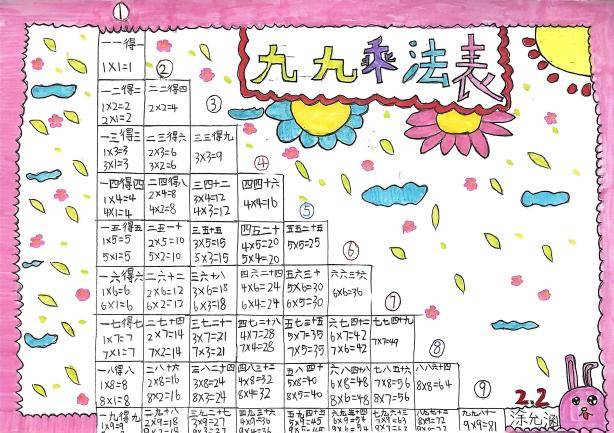 ①
九九乘法表
一一得一
1×1=1
②
一二得二 二二得四
1×2=2 2×2=4
2×1=2
③
一三得三 二三得六 三三得九
1×3=3 2×3=6 3×3=9
3×1=3 3×2=6
④
一四得四 二四得八 三四十二 四四十六
1×4=4 2×4=8 3×4=12 4×4=16
4×1=4 4×2=8 4×3=12
⑤
一五得五 二五一十 三五十五 四五二十 五五二十五
1×5=5 2×5=10 3×5=15 4×5=20 5×5=25
5×1=5 5×2=10 5×3=15 5×4=20
⑥
一六得六 二六十二 三六十八 四六二十四 五六三十 六六三六
1×6=6 2×6=12 3×6=18 4×6=24 5×6=30 6×6=36
6×1=6 6×2=12 6×3=18 6×4=24 6×5=30
⑦
一七得七 二七十四 三七二十一 四七二十八 五七三十五 六七四十二 七七四十九
1×7=7 2×7=14 3×7=21 4×7=28 5×7=35 6×7=42 7×7=49
7×1=7 7×2=14 7×3=21 7×4=28 7×5=35 7×6=42
⑧
一八得八 二八十六 三八二十四 四八三十二 五八四十 六八四十八 七八五十六 八八六十四
1×8=8 2×8=16 3×8=24 4×8=32 5×8=40 6×8=48 7×8=56 8×8=64
8×1=8 8×2=16 8×3=24 8×4=32 8×5=40 8×6=48 8×7=56
⑨
2.2
一九得九 二九十八 三九二十七 四九三十六 五九四十五 六九五十四 七九六十三 八九七十二 九九八十一
1×9=9 2×9=18 3×9=27 4×9=36 5×9=45 6×9=54 7×9=63 8×9=72 9×9=81